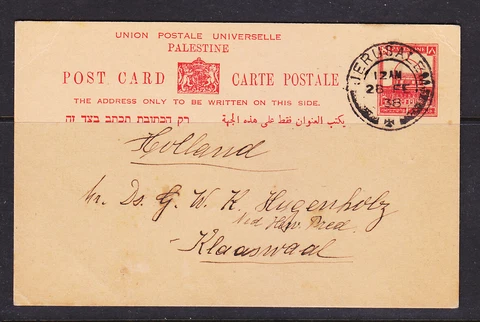 UNION POSTALE UNIVERSELLE
PALESTINE
POST CARD CARTE POSTALE
THE ADDRESS ONLY TO BE WRITTEN ON THIS SIDE.
רק הכתובת תכתב בצד זה يكتب العنوان فقط على هذه الجهة
JERUSALEM
12AM
28 FE
38
Holland
Mr. Ds. G. W. K. Hugenholtz
Ned. Herv. Pred.
Klaaswaal